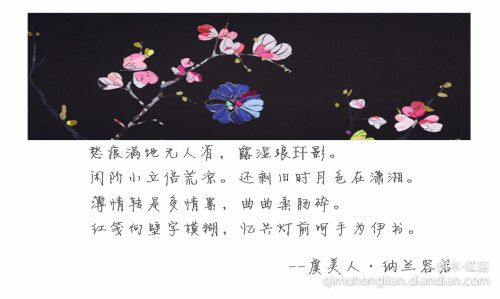 愁痕满地无人省，露湿琅玕影。
闲阶小立倍荒凉。还剩旧时月色在潇湘。
薄情转是多情累，曲曲柔肠碎。
红笺向壁字模糊，忆共灯前呵手为伊书。
--虞美人·纳兰容若
qimuhonglian.diandian.com